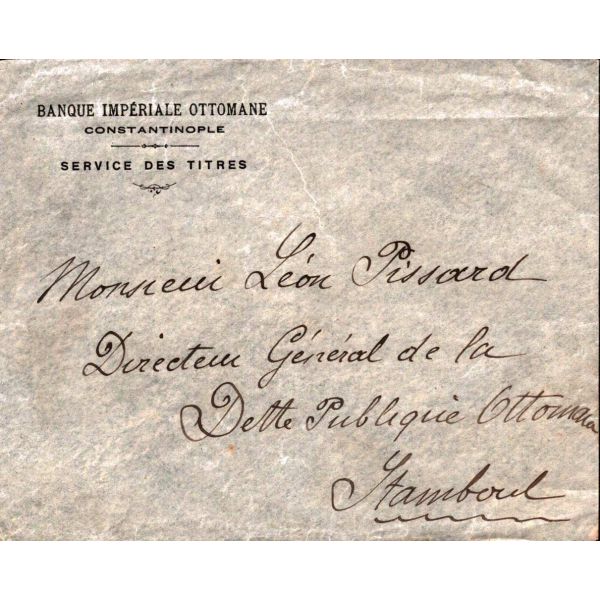 BANQUE IMPÉRIALE OTTOMANE
CONSTANTINOPLE
SERVICE DES TITRES
Monsieur Léon Pissard
Directeur Général de la
Dette Publique Ottomane
Stamboul